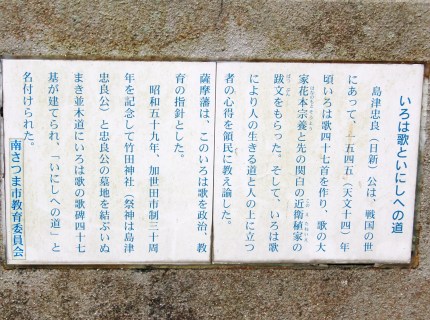 いろは歌といにしへの道
島津忠良（日新）公は、戦国の世
にあって、一五四五（天文十四）年
頃いろは歌四十七首を作り、歌の大
家花本宗養と先の関白の近衛稙家の
跋文をもらった。そして、いろは歌
により人の生きる道と人の上に立つ
者の心得を領民に教え諭した。
薩摩藩は、このいろは歌を政治、教
育の指針とした。
昭和五十九年、加世田市制三十周
年を記念して竹田神社（祭神は島津
忠良公）と忠良公の墓地を結ぶいぬ
まき並木道にいろは歌の歌碑四十七
基が建てられ、「いにしへの道」と
名付けられた。
南さつま市教育委員会